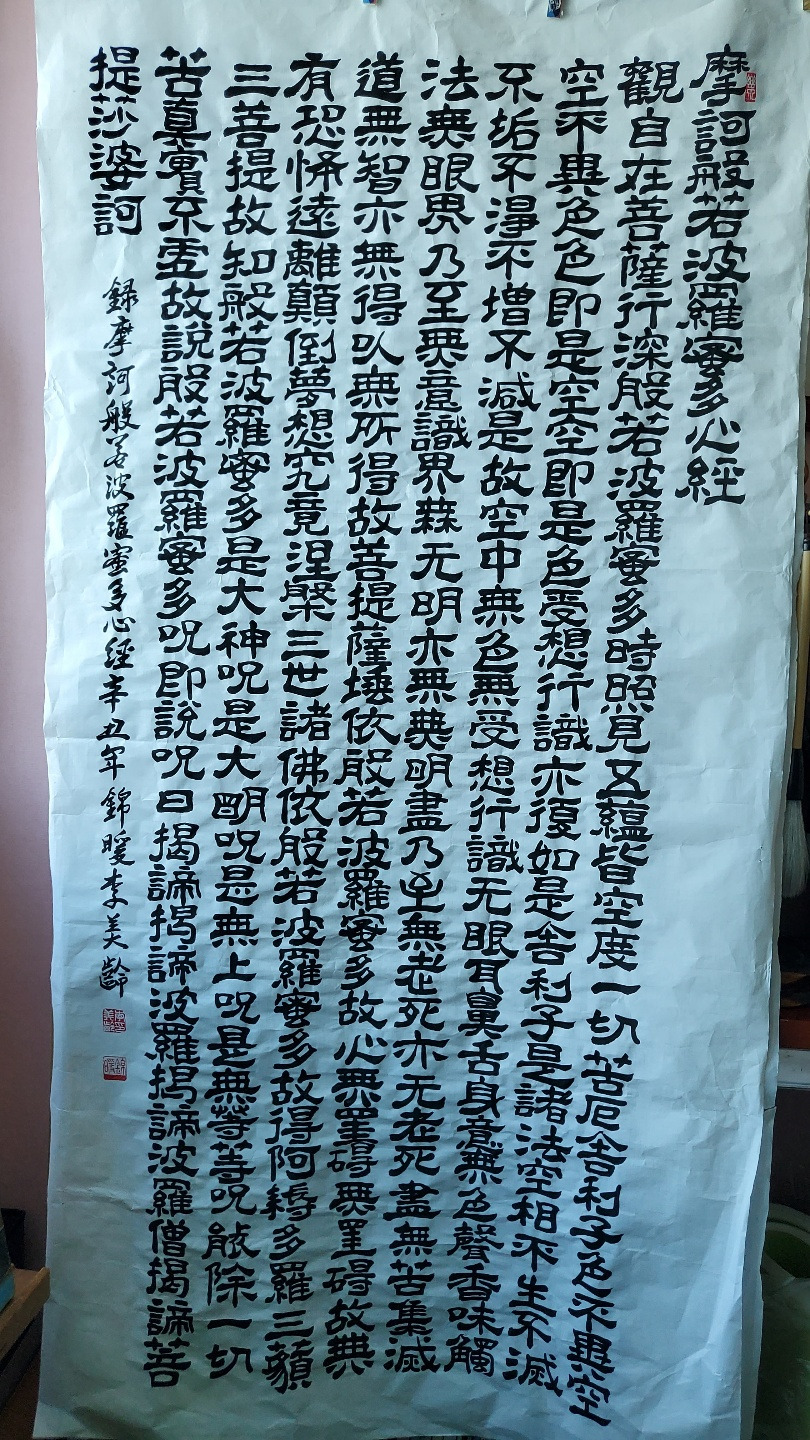 摩訶般若波羅蜜多心經
觀自在菩薩行深般若波羅蜜多時照見五蘊皆空度一切苦厄舍利子色不異空
空不異色色即是空空即是色受想行識亦復如是舍利子是諸法空相不生不滅
不垢不淨不增不減是故空中無色無受想行識无眼耳鼻舌身意無色聲香味觸
法無眼界乃至無意識界無无明亦無無明盡乃至無老死亦无老死盡無苦集滅
道無智亦無得以無所得故菩提薩埵依般若波羅蜜多故心無罣碍無罣碍故無
有恐怖遠離顛倒夢想究竟涅槃三世諸佛依般若波羅蜜多故得阿耨多羅三藐
三菩提故知般若波羅蜜多是大神呪是大明呪是無上呪是無等等呪能除一切
苦真實不虛故說般若波羅蜜多呪即說呪曰揭諦揭諦波羅揭諦波羅僧揭諦菩
提莎婆訶
錄摩訶般若波羅蜜多心經辛丑年錦暖李美齡